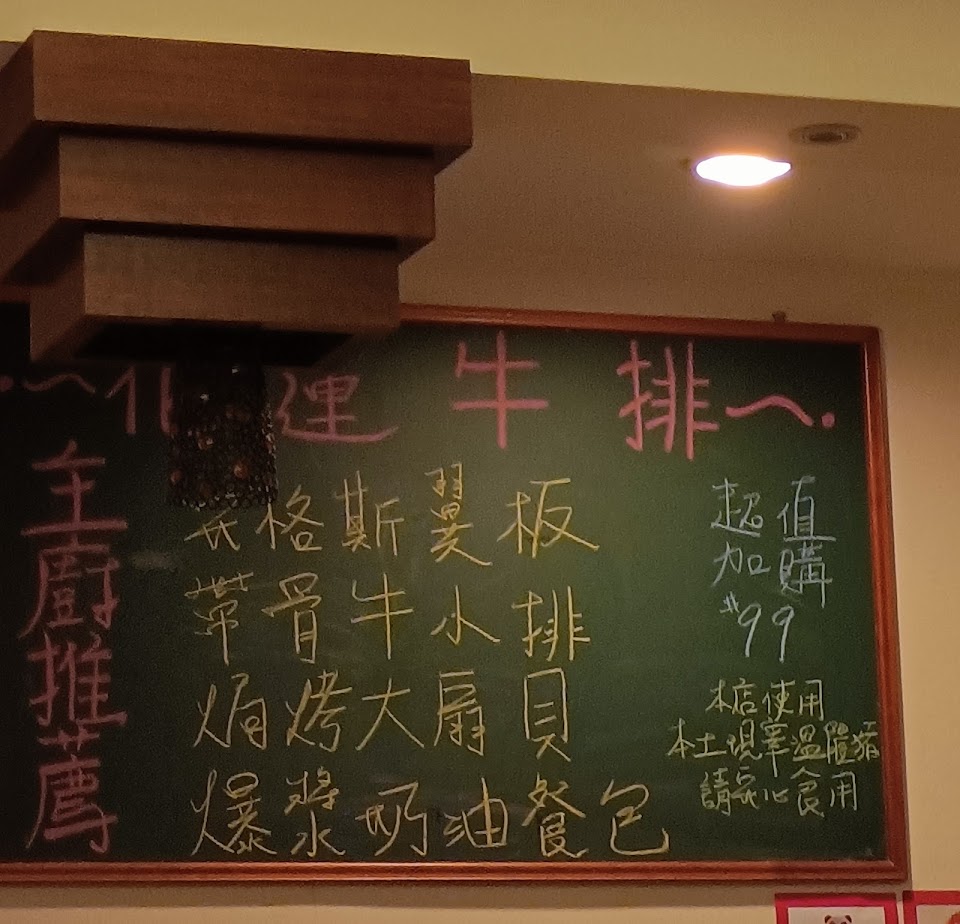 運牛排
主廚推薦
格斯翼板
帶骨牛小排
焗烤大扇貝
爆漿奶油餐包
超值
加購
#99
本店使用
本土現宰溫體豬
請安心食用